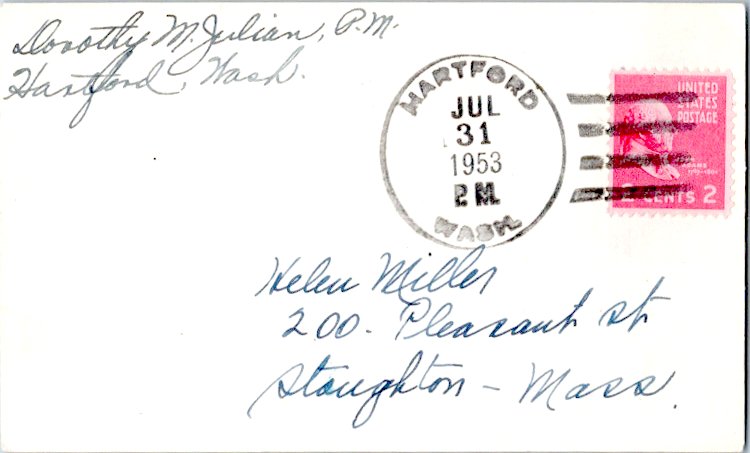 Dorothy M. Julian, P.M.
Hartford, Wash.
HARTFORD
JUL
31
1953
P M.
WASH.
UNITED
STATES
POSTAGE
ADAMS
2 CENTS 2
Helen Miller
200 - Pleasant St.
Stoughton - Mass.